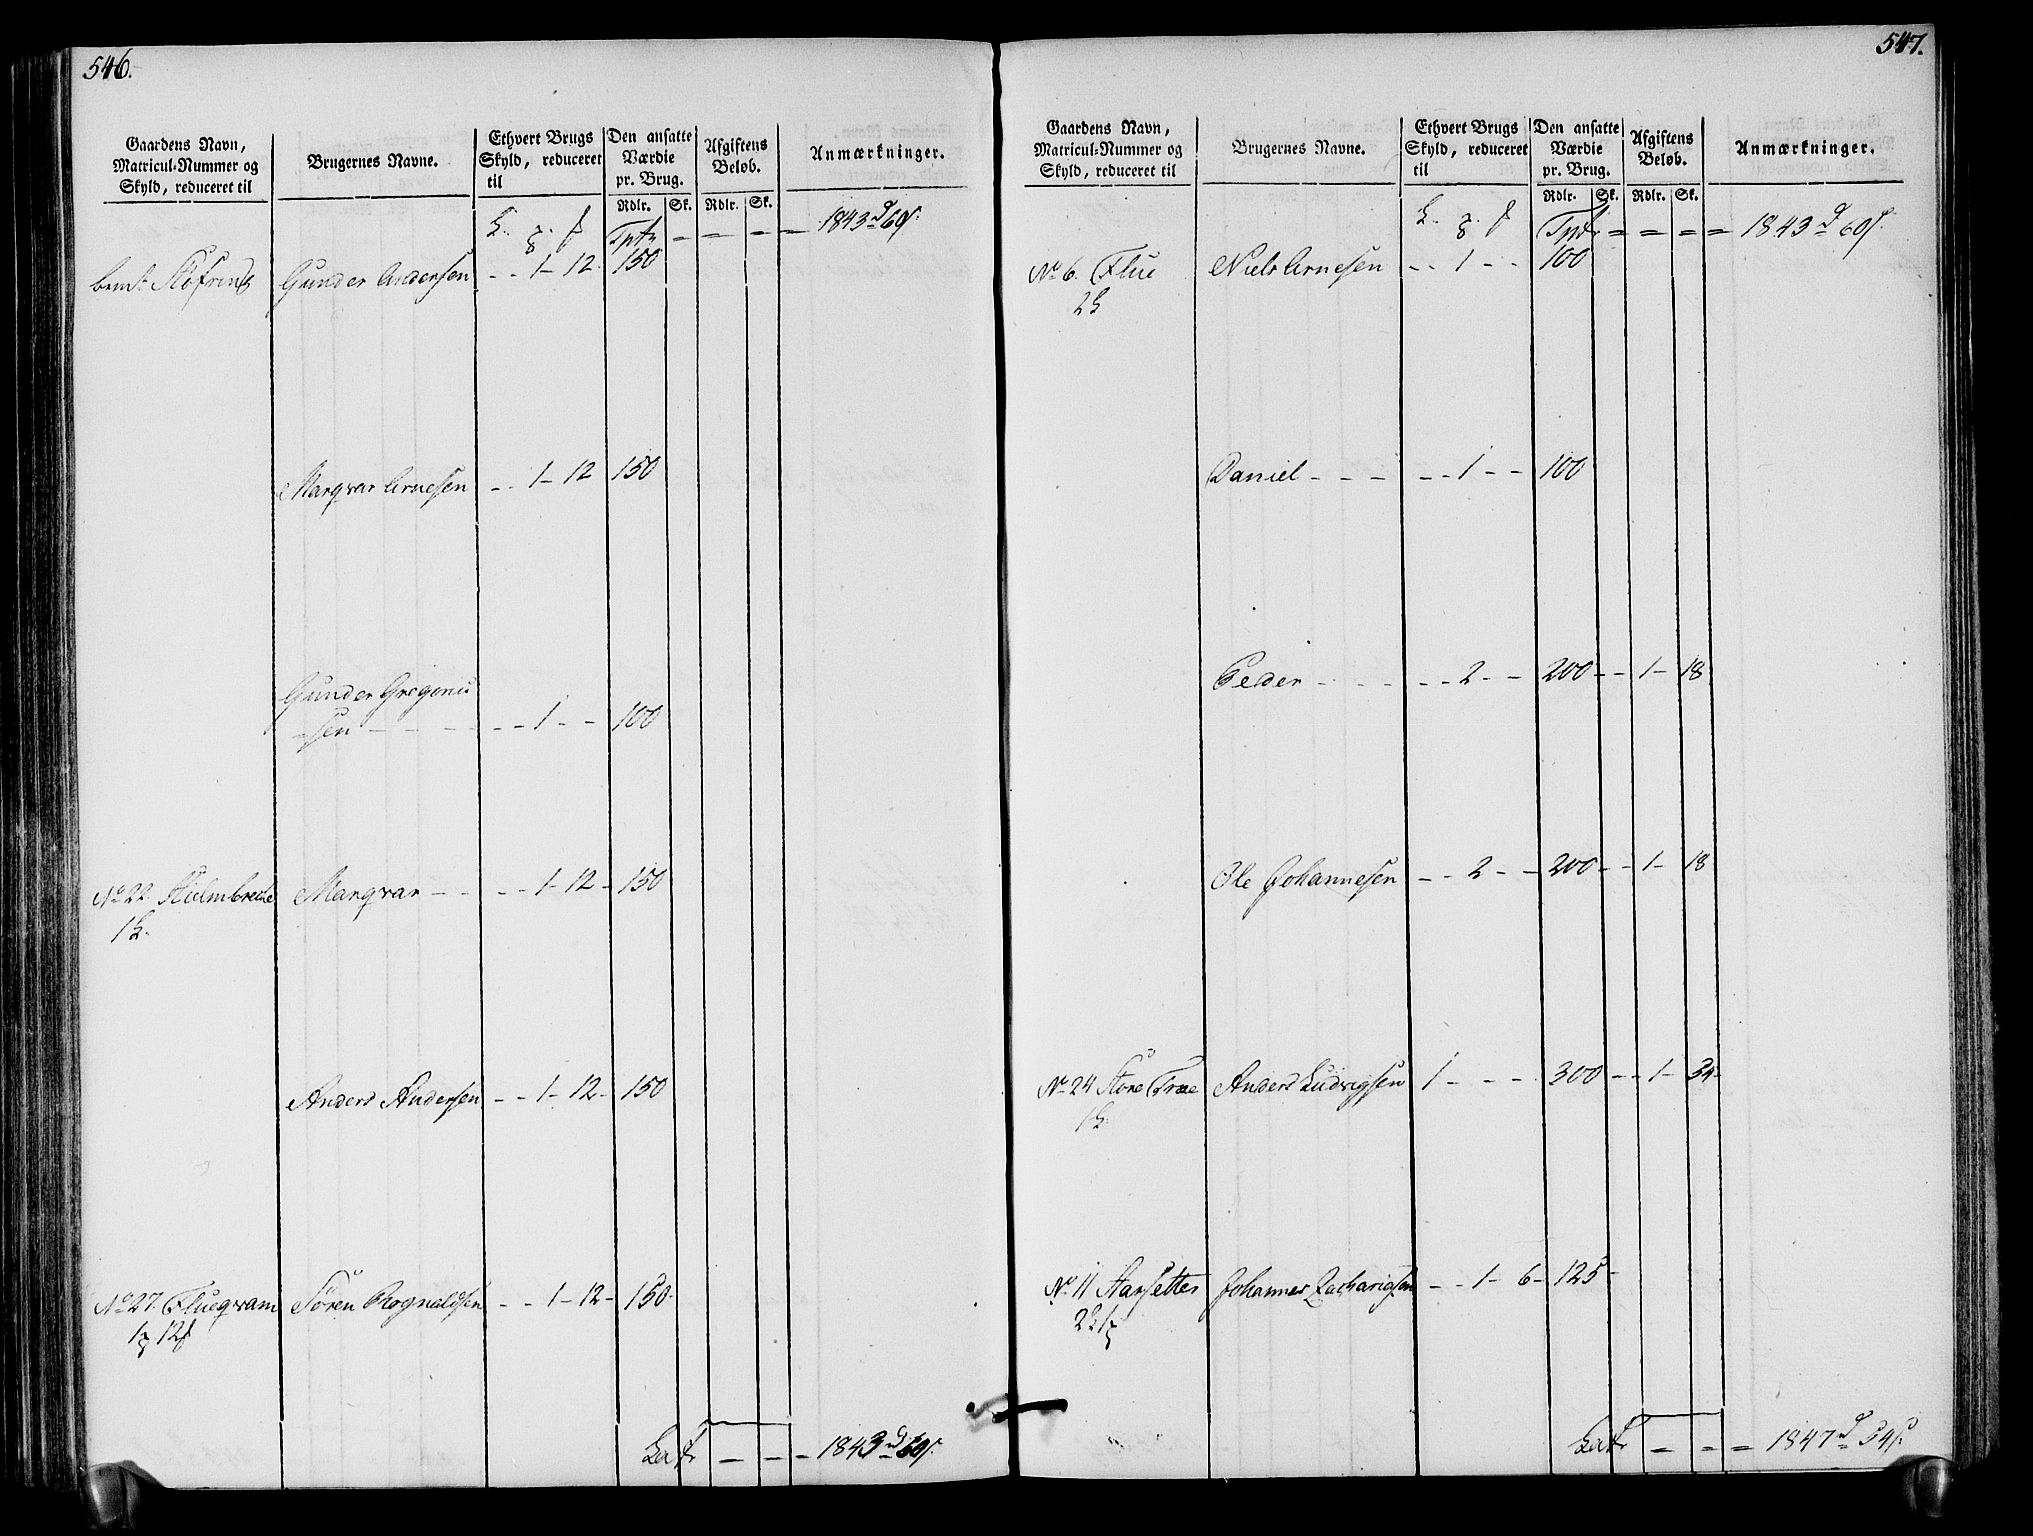 546.
Gaardens Navn,
Matricul-Nummer og
Skyld, reduceret til
Brugernes Navne.
Ethvert Brugs
Skyld, reduceret
til
Den ansatte
Værdie
pr. Brug.
Afgiftens
Beløb.
Anmærkninger.
Rdlr. Sk. Rdlr. Sk.
1843 d 60 s.
Gunder Andersen - - 1 - 12 150
Marqvar Arnesen - - 1 - 12 150
Gunder Gregoriu
-sen - - - - - - 1 - - 100
No 22. Holmbrecke Marqvar - - - - 1 - 12 - 150
Anders Andersen - - 1 - 12 - 150
No 27. Flueqvam Sören Rognaldsen - - 1 - 12 - 150
Latr - - - 1843 d 60 s.
547.
Gaardens Navn,
Matricul-Nummer og
Skyld, reduceret til
Brugernes Navne.
Ethvert Brugs
Skyld, reduceret
til
Den ansatte
Værdie
pr. Brug.
Afgiftens
Beløb.
Anmærkninger.
Rdlr. Sk. Rdlr. Sk.
1843 d 60 s.
No 6. Flue Niels Arnesen - - 1 - - 100
Daniel - - - - - 1 - - 100
Peder - - - - - 2 - - 200 - - 1 - 18
Ole Johannesen - - 2 - - 200 - - 1 - 18
No 24 Store Fræ Anders Ludvigsen 1 - - - 300 - - 1 - 34
No 11 Aarsetter Johannes Zachariasen - - 1 - 6 - 125 -
Latr - - - 1847 d 34 s.